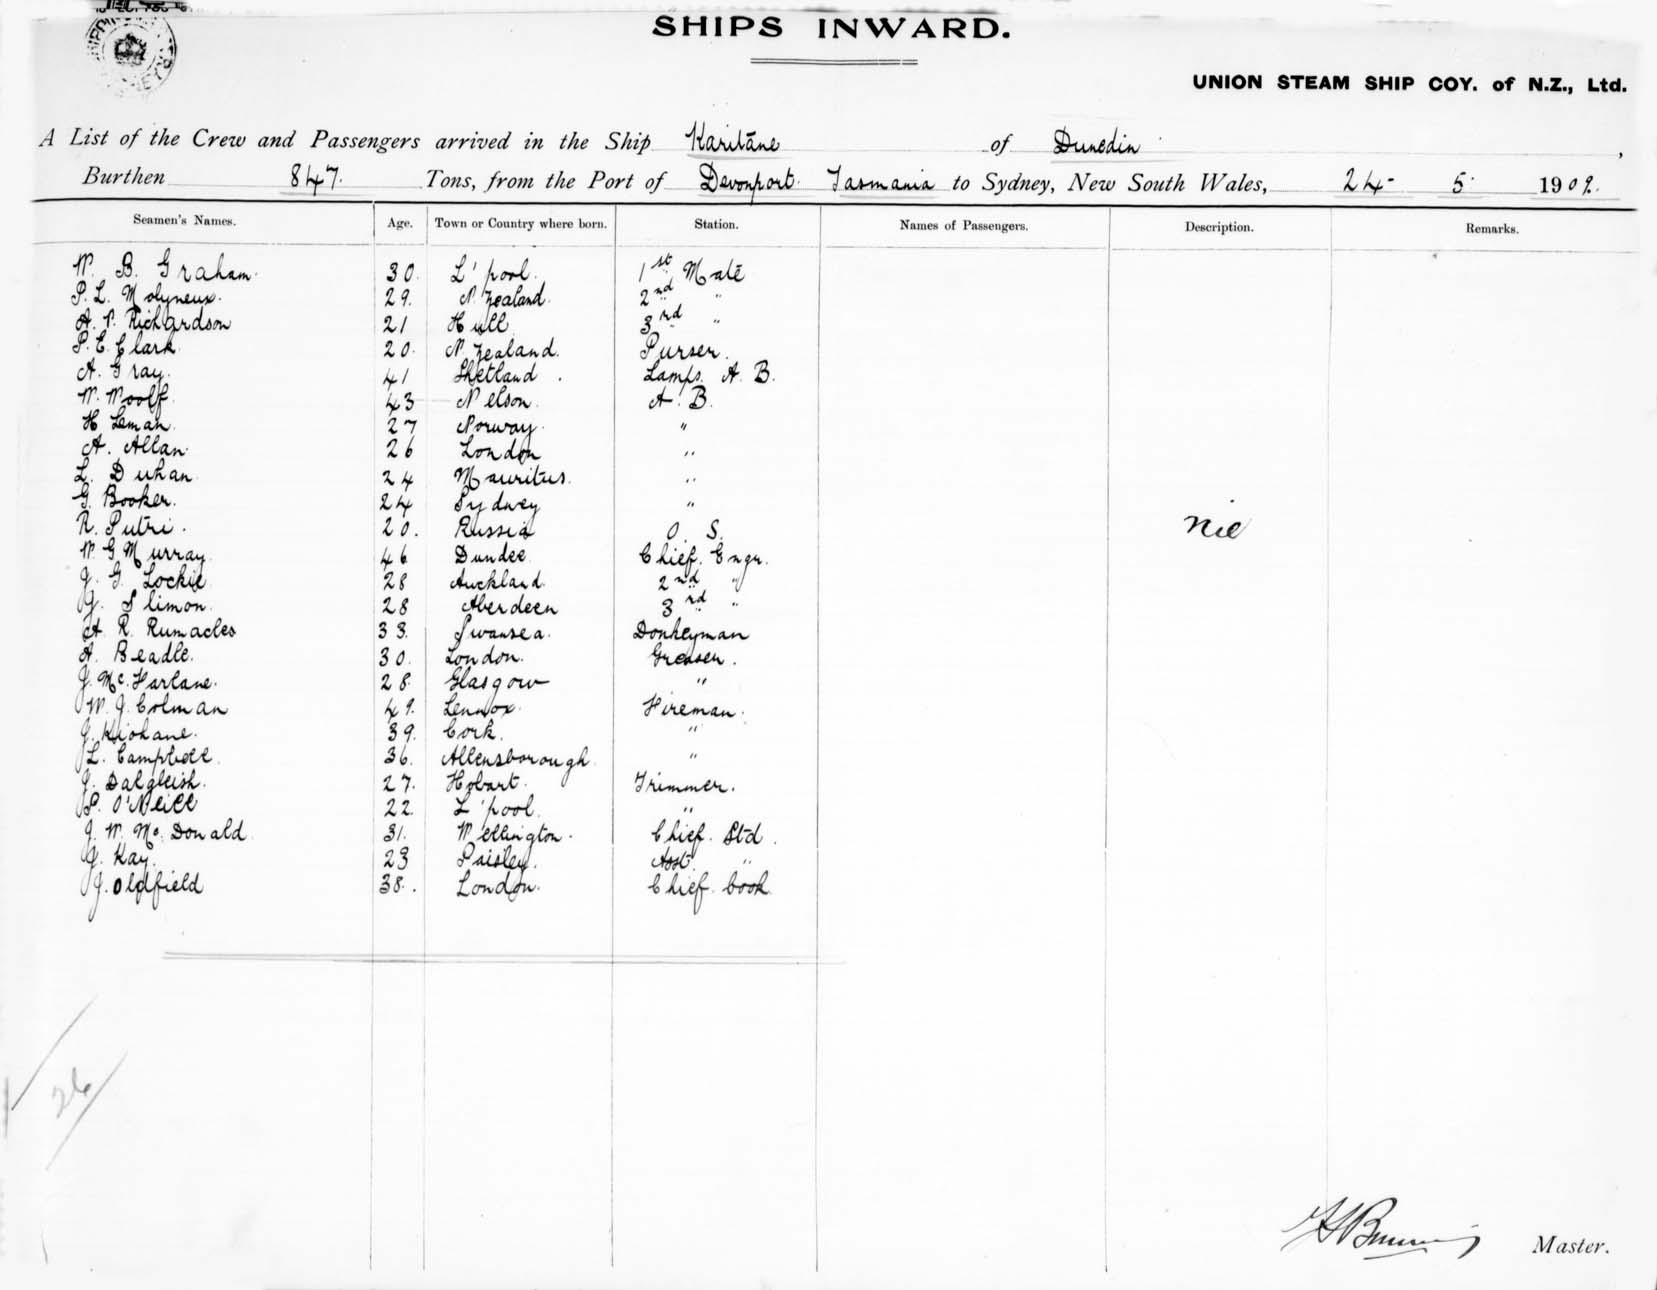 SHIPS INWARD.
UNION STEAM SHIP COY. of N.Z., Ltd.
A List of the Crew and Passengers arrived in the Ship Karitane of Dunedin,
Burthen 847 Tons, from the Port of Devonport Tasmania to Sydney, New South Wales, 24 5 1909
Seamen's Names. Age. Town or Country where born. Station. Names of Passengers. Description. Remarks.
W. B. Graham. 30. L'pool. 1st Mate
P. L. Molyneux. 29. N. Zealand. 2nd "
A. P. Richardson 21 Hull 3rd "
P. E. Clark 20. N. Zealand. Purser.
A. Gray. 41 Shetland. Lamps. A. B.
W. Woolf. 43 Nelson. A. B.
H Leman. 27 Norway. "
A. Allan. 26 London "
L. Duhan 24 Mauritus. "
G. Booker. 24 Sydney "
R. Putri. 20. Russia O. S. Nil
W. G Murray. 46 Dundee Chief. Engr.
J. G. Lockie 28 Auckland. 2nd "
G. Slimon. 28 Aberdeen 3rd "
A. R. Rumacles 33. Swansea. Donkeyman
A. Beadle. 30. London. Greaser.
J. Mc. Farlane. 28. Glasgow "
W. J. Colman 49. Lennox. Fireman.
J. Kiohane. 39. Cork. "
L. Campbell 36. Allensborough "
J. Dalgleish. 27. Hobart. Trimmer.
P. O'Neill 22. L'pool. "
J. W. Mc. Donald 31. Wellington. Chief. Std.
J. Kay. 23 Paisley. Asst. "
J. Oldfield 38. London. Chief. Cook
26
Master.